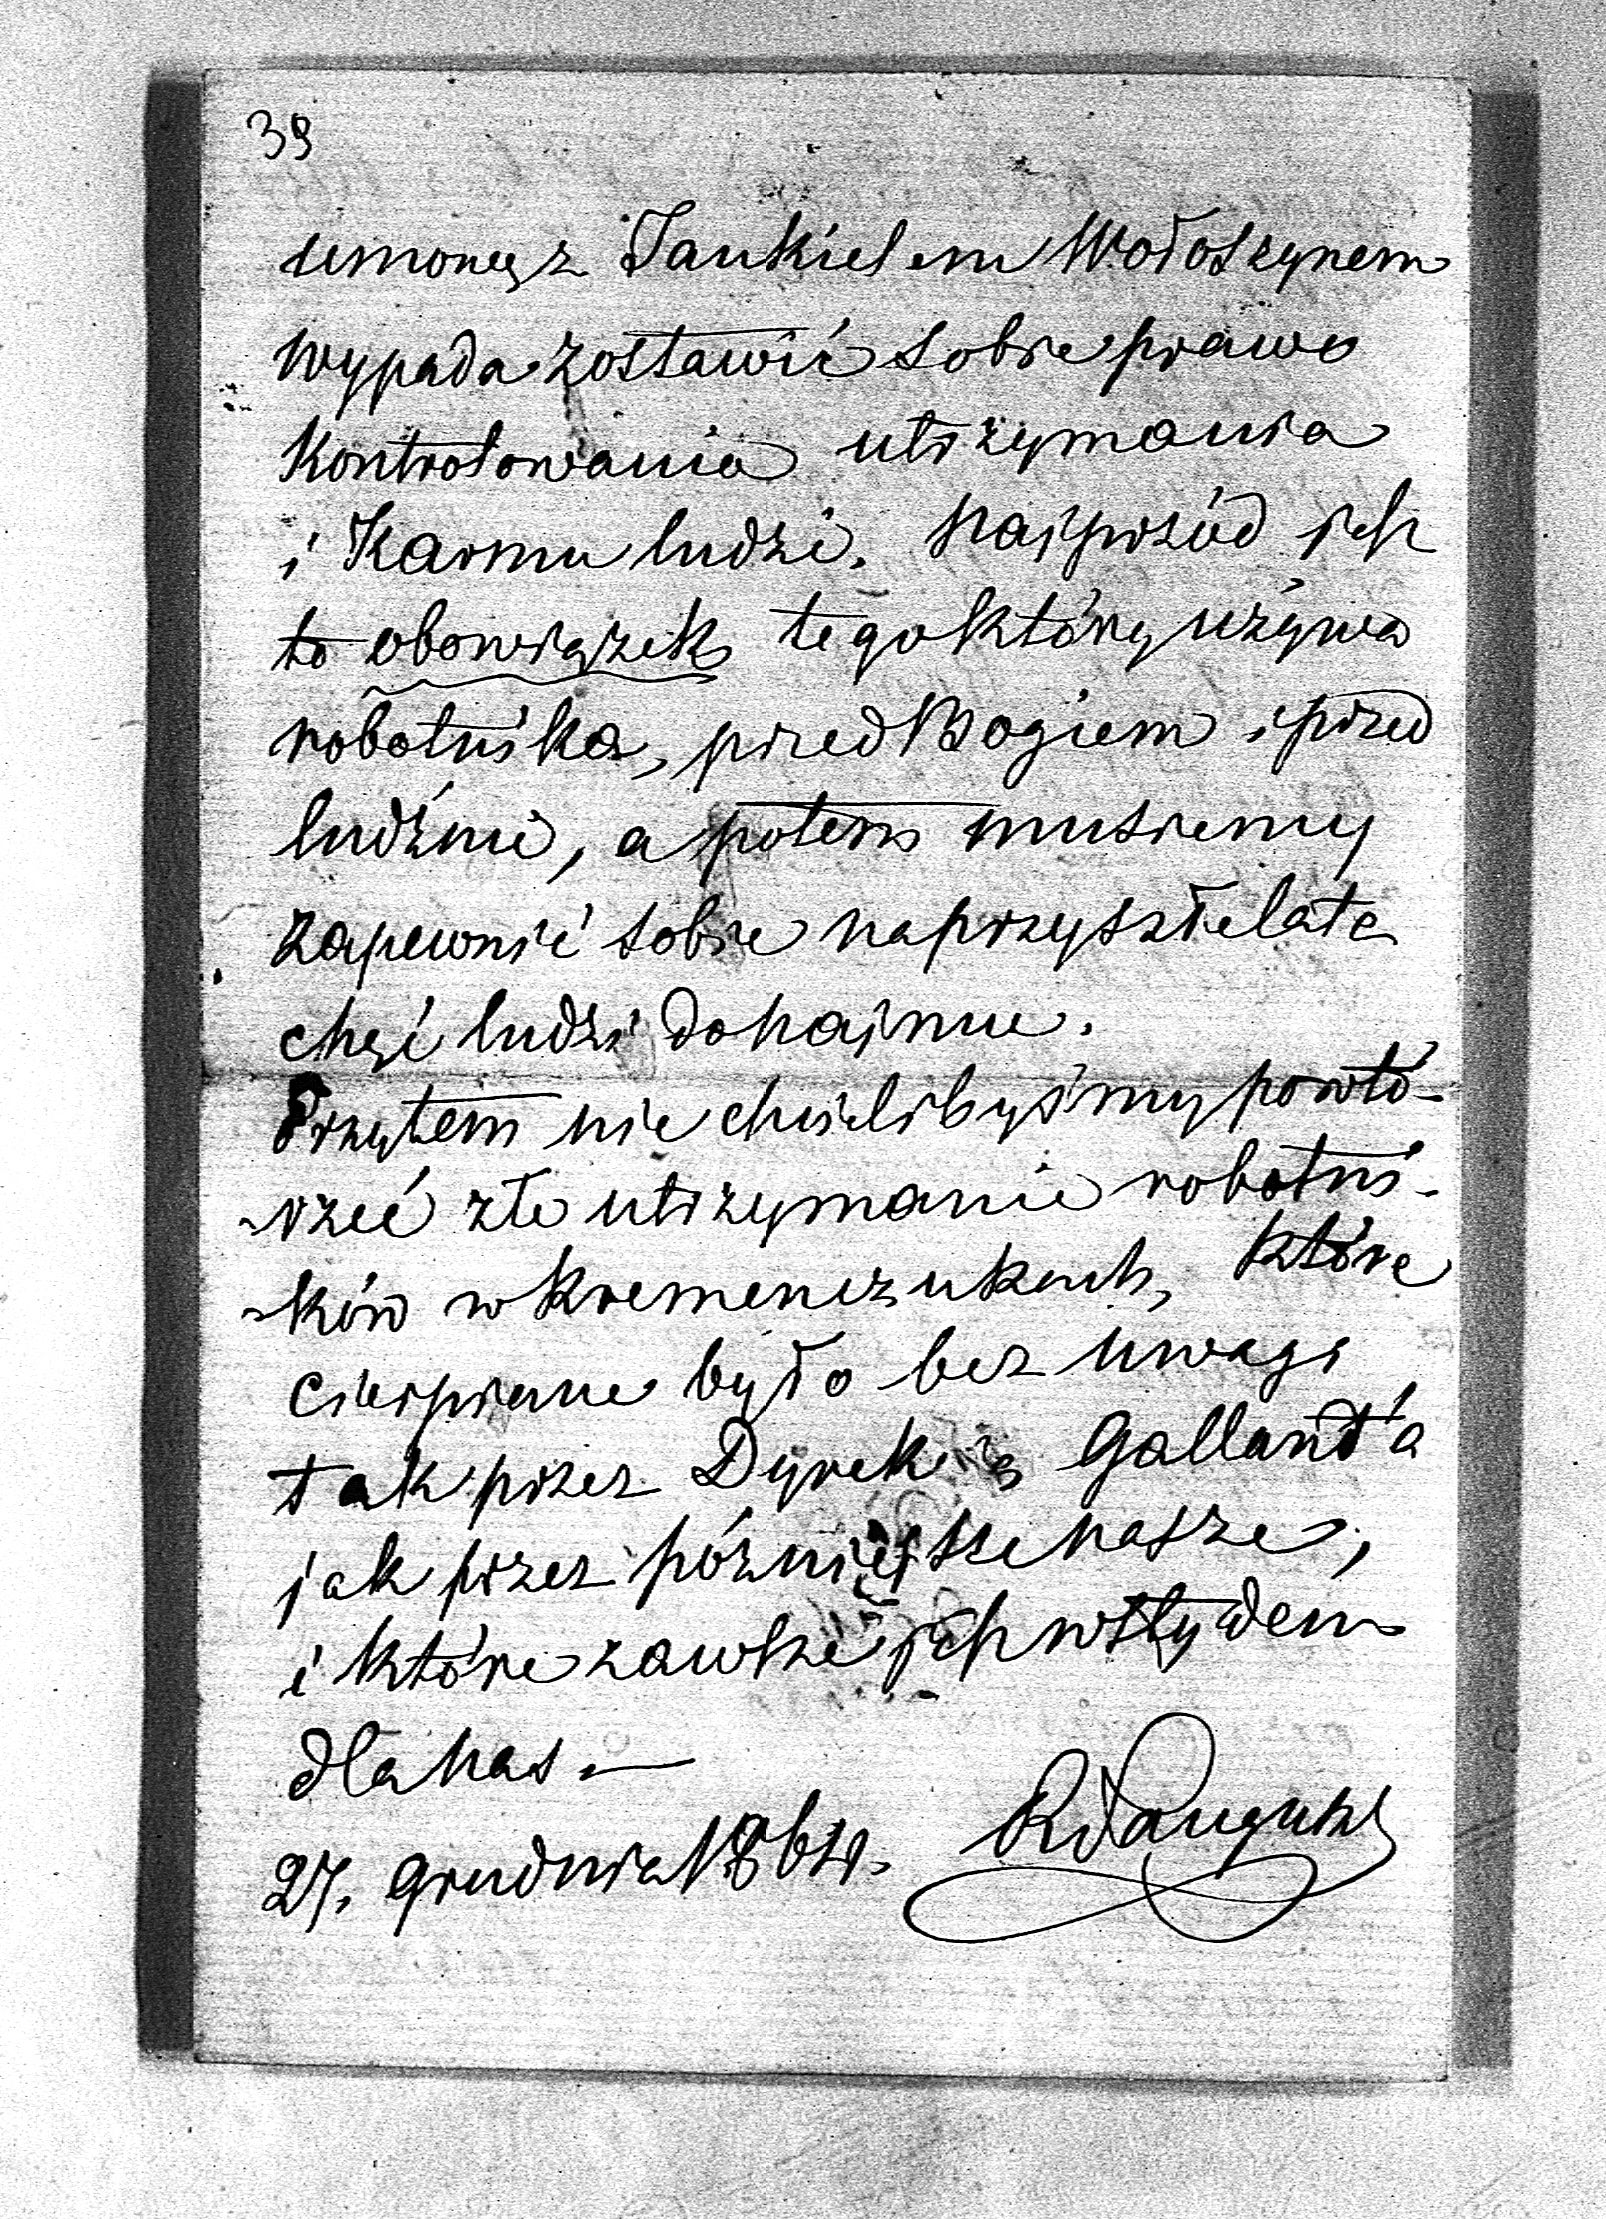 39
umowę z Jankielem Wołoszynem
wypada zostawić sobie prawo
kontrolowania utrzymania
i Karmu ludzi. Najprzód jest
to obowiązek tego który używa
robotnika, przed Bogiem i przed
ludźmi, a potem musiemy
zapewnić sobie na przyszłe lata
chęć ludzi do najmu.
Przytem nie chcielibyśmy powtó-
-rzeć złe utrzymanie robotni-
-ków w Kremenczukach, które
cierpiane było bez uwagi
tak przez Dyrek Gallant'a
jak przez późniejsze nasze,
i które zawsze jest wstydem
dla nas. —
27. Grudnia 1864. RSanguszko